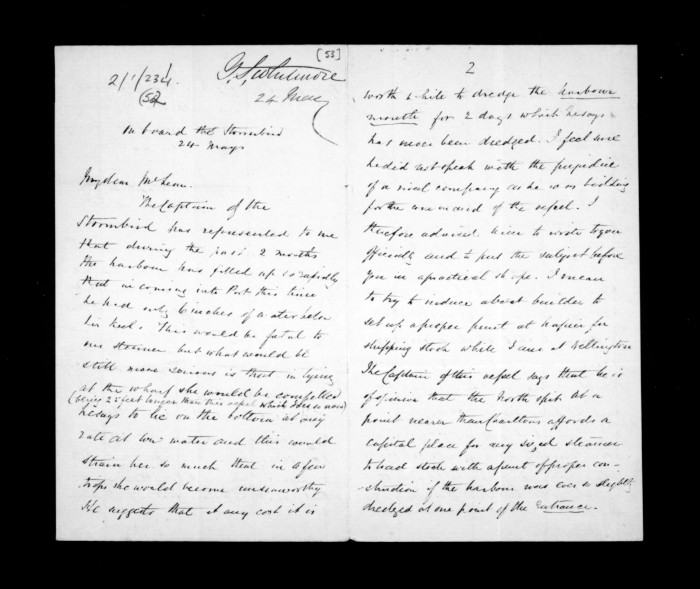 [53]
2/1/234.
(52)
G. S. Whitmore
24 May
On board the Stormbird
24 May
My dear McLean.
The Captain of the
Stormbird has represented to me
that during the past 2 months
the harbour has filled up so rapidly
that in coming into Port this time
he had only 6 inches of water below
his keel. This would be fatal to
our steamer but what would be
still more serious is that in lying
at the wharf she would be compelled
(being 25 feet longer than this vessel which does so now)
he says to lie on the bottom at any
rate at low water and this would
strain her so much that in a few
trips she would become unseaworthy
He suggests that at any cost it is
2
worth while to dredge the harbour
mouth for 2 days which he says
has never been dredged. I feel sure
he did not speak with the prejudice
of a rival company as he was bidding
for the command of the vessel. I
therefore advised him to write to you
officially and to put the subject before
you in a practical shape. I mean
to try to induce a boat builder to
set up a proper punt at Napier for
shipping stock while I am at Wellington
The Captain of this vessel says that he is
of opinion that the North spit at a
point nearer than Charltons affords a
capital place for any sized steamer
to load stock with a punt of proper con-
-struction if the harbour was ever so slightly
dredged at one point of the entrance.